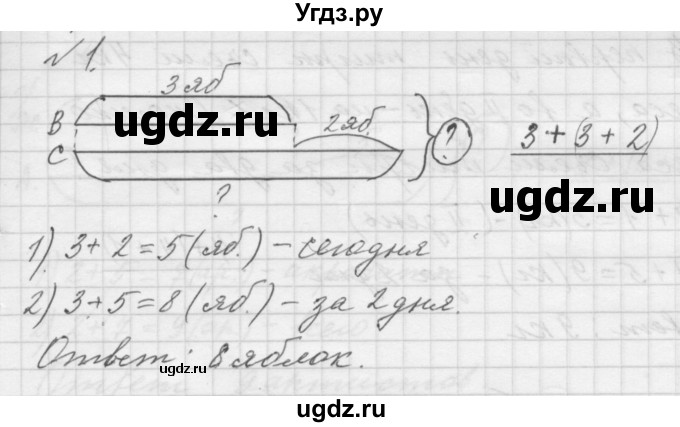 Угдз.ру
№ 1.
3 яб
В
2 яб.
?
3 + (3 + 2)
С
?
ugdz.ru
ugdz.ru
1) 3 + 2 = 5 (яб.) – сегодня
2) 3 + 5 = 8 (яб.) – за 2 дня.
Ответ: 8 яблок.
ugdz.ru
ugdz.ru